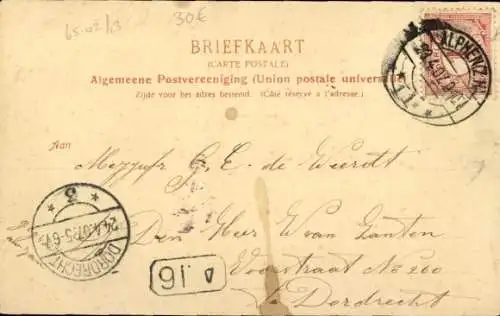 65.02/3
30€
BRIEFKAART
(CARTE POSTALE)
Algemeene Postvereeniging (Union postale universelle)
Zijde voor het adres bestemd. (Côté réservé à l'adresse.)
ALPHEN
Aan
Mejufr G. E. de Weerdt
Den Heer W van Zanten
Voorstraat No 260
Dordrecht
3
24.4.07.5-6
DORDRECHT
A 16